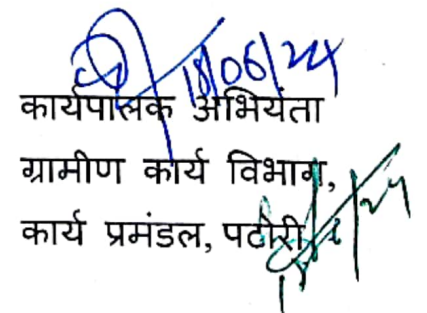 18/06/24
कार्यपालक अभियंता
ग्रामीण कार्य विभाग,
कार्य प्रमंडल, पटोरी